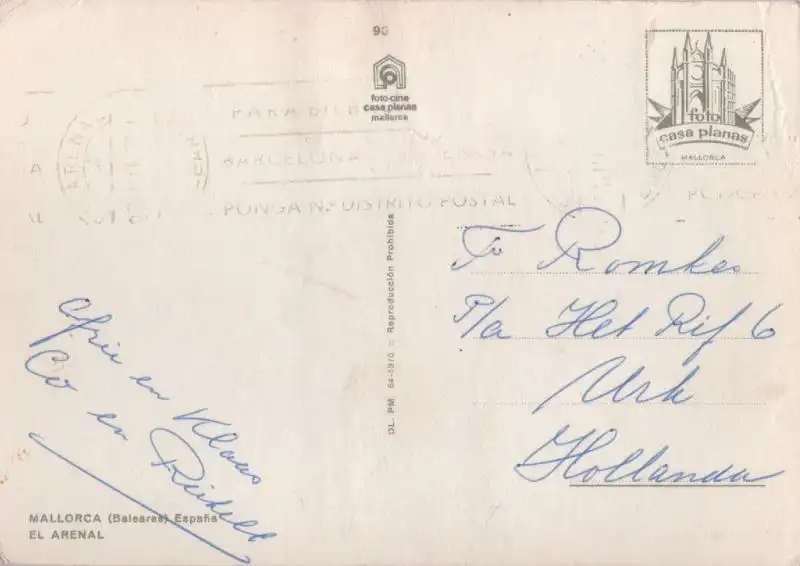 90
foto-cine
casa planas
mallorca
foto
casa planas
MALLORCA
BARCELONA
PONGA N.º DISTRITO POSTAL
DL. PM 64-1970 - Reproducción Prohibida
Romkes
P/a Het Rif 6
Urk
Hollanda
en Klaas
Co en
MALLORCA (Baleares) España
EL ARENAL